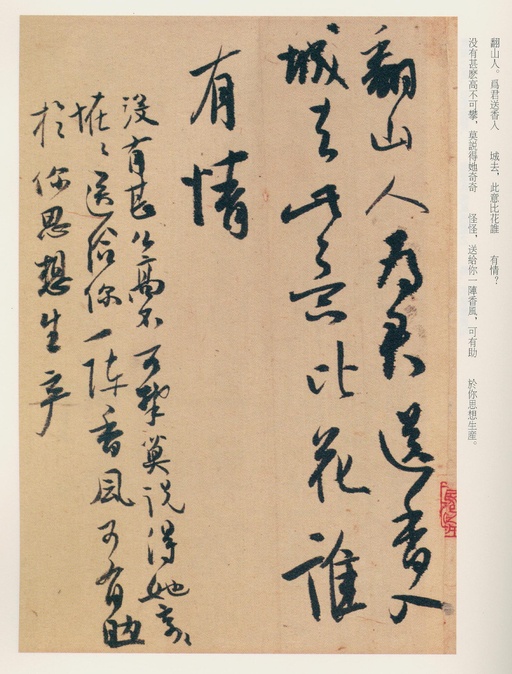 翻山人。爲君送香入　城去，此意比花誰　有情？
没有甚麽高不可攀，莫説得她奇奇　怪怪，送給你一陣香風，可有助　於你思想生産。
翻山人为君送香入
城去此意比花誰
有情
没有甚么高不可攀莫説得她奇々
怪々送给你一阵香風可有助
於你思想生产